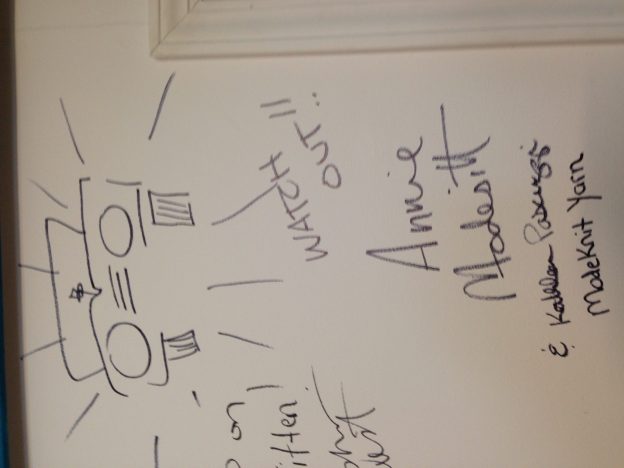 WATCH
OUT!!
Annie
Modesitt
& Kathleen Pascuzzi
ModeKnit Yarn
on